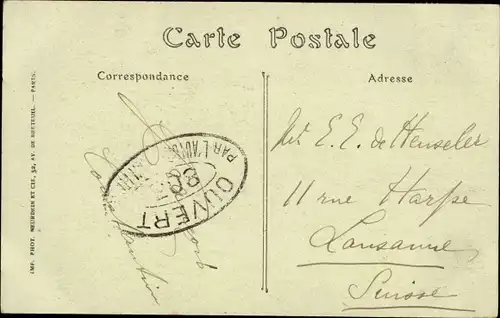 Carte Postale
Correspondance
Adresse
E. E. de Henseler
11 rue Harpe
Lausanne
Suisse
OUVERT
PAR L'AUTORITÉ
IMP. PHOT. NEURDEIN ET CIE, 52, AV. DE BRETEUIL. — PARIS.